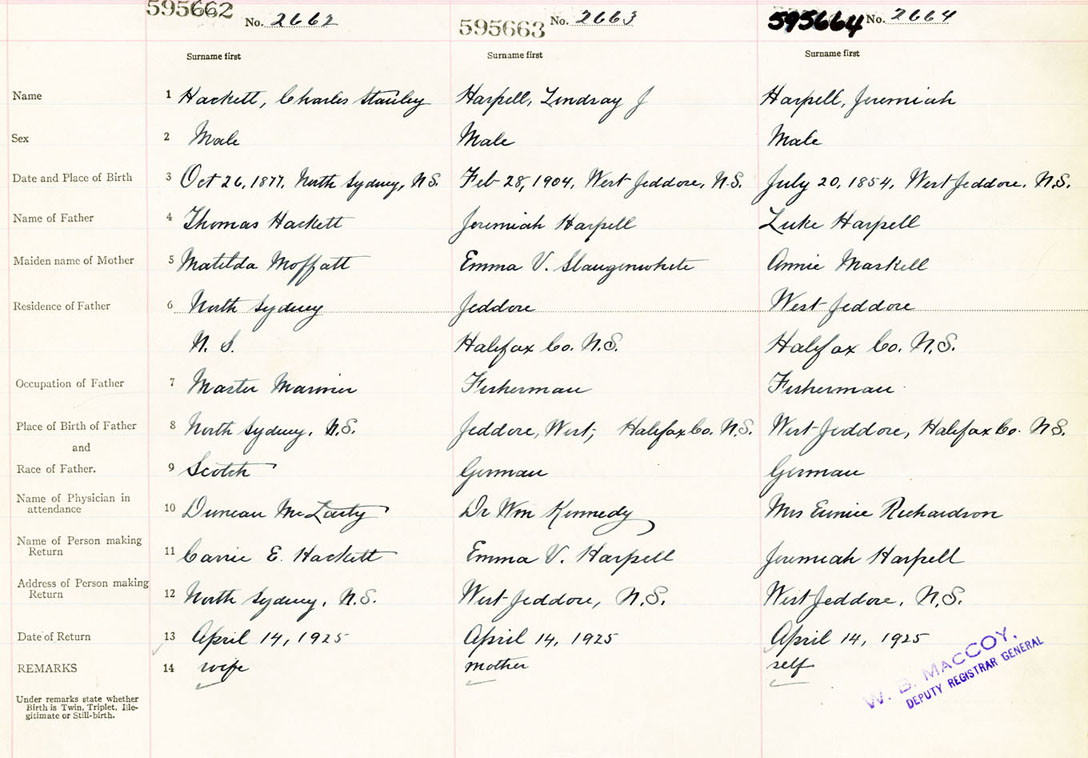 595662 No. 2662 595663 No. 2663 595664 No. 2664
Surname first Surname first Surname first
Name 1 Hackett, Charles Stanley Harpell, Lindsay J Harpell, Jeremiah
Sex 2 Male Male Male
Date and Place of Birth 3 Oct 26, 1877, North Sydney, N.S. Feb 28, 1904, West Jeddore, N.S. July 20, 1854, West Jeddore, N.S.
Name of Father 4 Thomas Hackett Jeremiah Harpell Luke Harpell
Maiden name of Mother 5 Matilda Moffatt Emma V. Slaugenwhite Annie Maskell
Residence of Father 6 North Sydney Jeddore West Jeddore
N. S. Halifax Co. N.S. Halifax Co. N.S.
Occupation of Father 7 Master Mariner Fisherman Fisherman
Place of Birth of Father 8 North Sydney, N.S. Jeddore, West, Halifax Co. N.S. West Jeddore, Halifax Co. N.S.
and
Race of Father. 9 Scotch German German
Name of Physician in
attendance 10 Duncan Dr Wm Kennedy Mrs Eunice Richardson
Name of Person making
Return 11 Carrie E. Hackett Emma V. Harpell Jeremiah Harpell
Address of Person making
Return 12 North Sydney, N.S. West Jeddore, N.S. West Jeddore, N.S.
Date of Return 13 April 14, 1925 April 14, 1925 April 14, 1925
REMARKS 14 wife mother self
Under remarks state whether
Birth is Twin, Triplet, Ille-
gitimate or Still-birth.
W. B. MACCOY,
DEPUTY REGISTRAR GENERAL